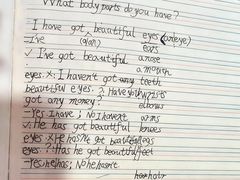 What body parts do you have?
I have got beautiful eyes (an eye)
-I've (глаз) ears
✓ I've got beautiful a nose
a mouth
eyes. x: I haven't got any teeth
beautiful eyes. ?: Have you wrists
got any money? elbows
-Yes I have; No I haven't arms
✓: He has got beautiful knees
eyes x: He hasn't got beautiful legs
eyes ?: Has he got beautiful feet
-Yes, he has; No he hasn't